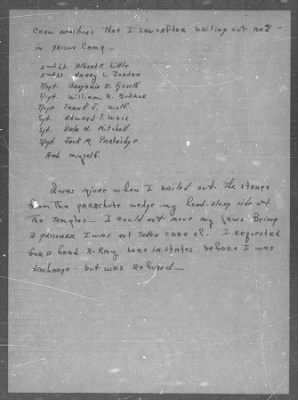 Crew members that I saw after bailing out and
in prison Camp —
2nd Lt. Albert C. Little
2nd Lt. Henry L. Jordan
T/Sgt. Benjamin
T/Sgt. William H.
S/Sgt. Frank J. Wolf
Sgt. Edward T. Wass
Sgt. Dale H. Mitchell
S/Sgt. Jack M. Partridge
And myself.
I was injure when I bailed out. The
from the parachute wedge my head along side of
the temples — I could not move my jaws. Being
a prisoner I was not taken care of. I requested
for a head X-Ray here in states before I was
discharge - but was refused —